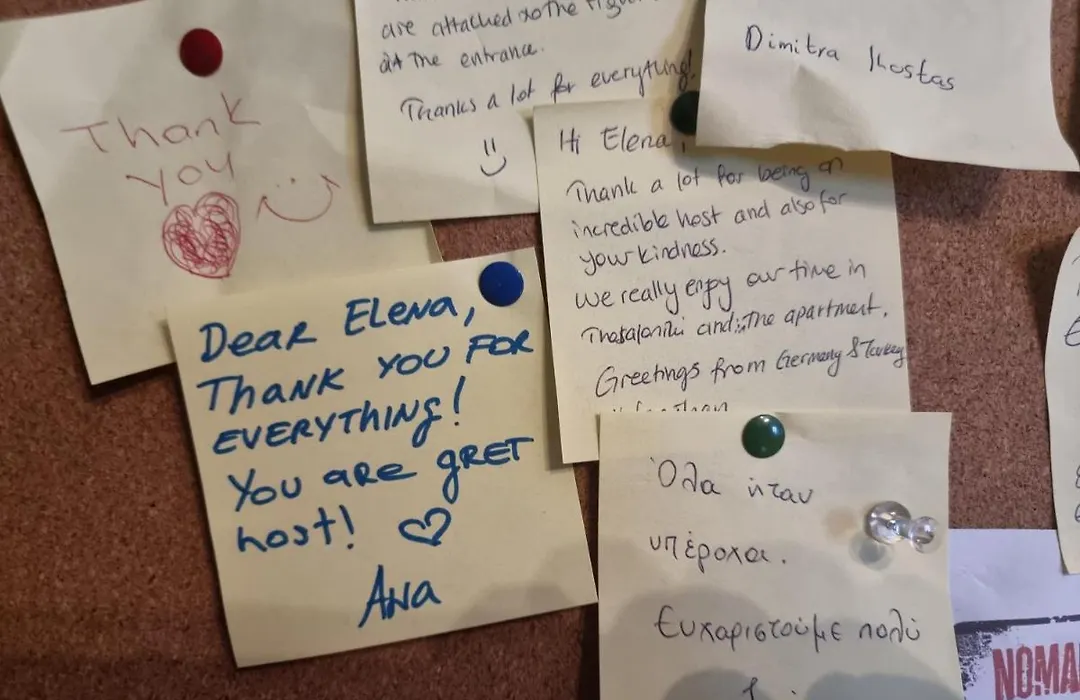 Thank
you
are attached to the
at the entrance.
Thanks a lot for everything!
Dimitra Kostas
Hi Elena,
Thank a lot for being an
incredible host and also for
your kindness.
we really enjoy our time in
and the apartment.
Greetings from Germany & Turkey
Dear Elena,
THANK YOU FOR
EVERYTHING!
You are GRET
host!
Ana
Όλα ήταν
υπέροχα.
Ευχαριστούμε πολύ
NOMA